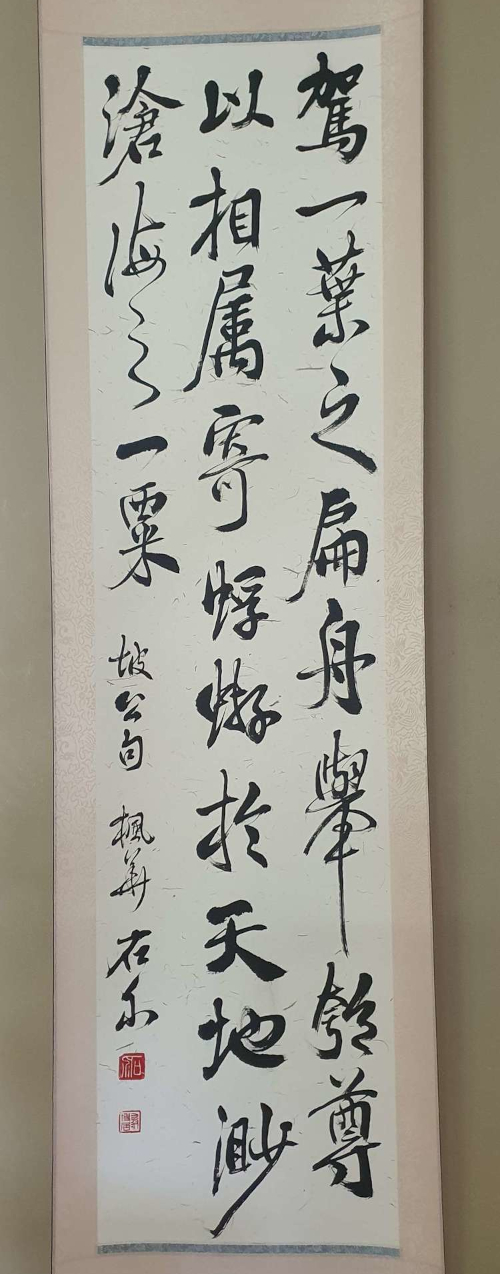 駕一葉之扁舟舉匏尊
以相属寄蜉蝣於天地渺
滄海之一粟
坡公句 楓華 石尔